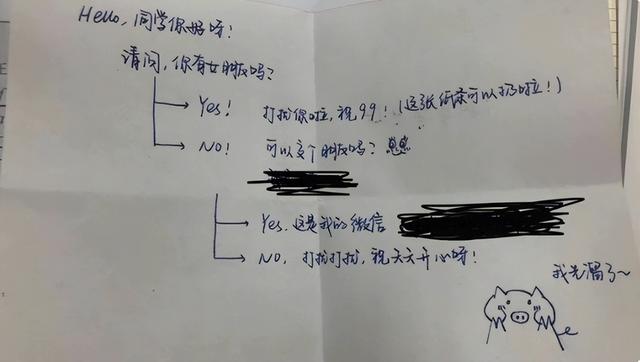 Hello，同学你好呀！
请问，你有女朋友吗？
Yes！ 打扰你啦，祝99！（这张纸条可以扔啦！）
NO！ 可以交个朋友吗？
Yes，这是我的微信
NO，打扰打扰，祝天天开心呀！
我先溜了~